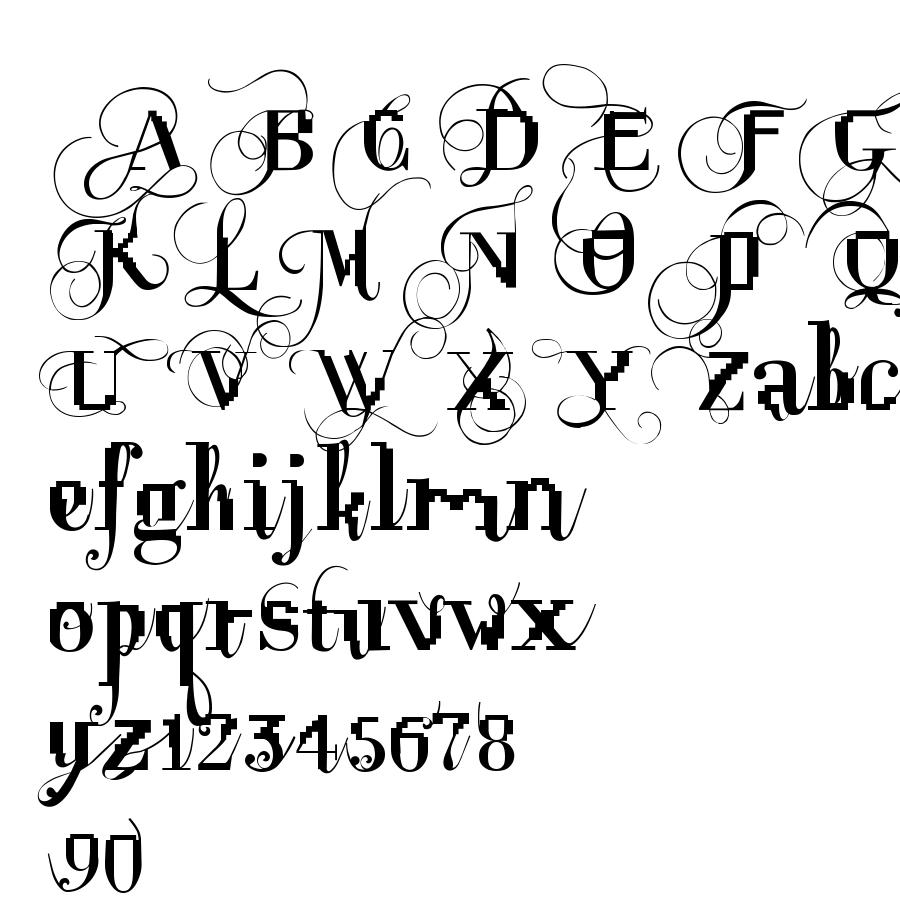 A B C D E F G
K L M N O P Q
U V W X Y Z a b c
e f g h i j k l m n
o p q r s t u v w x
y z 1 2 3 4 5 6 7 8
9 0